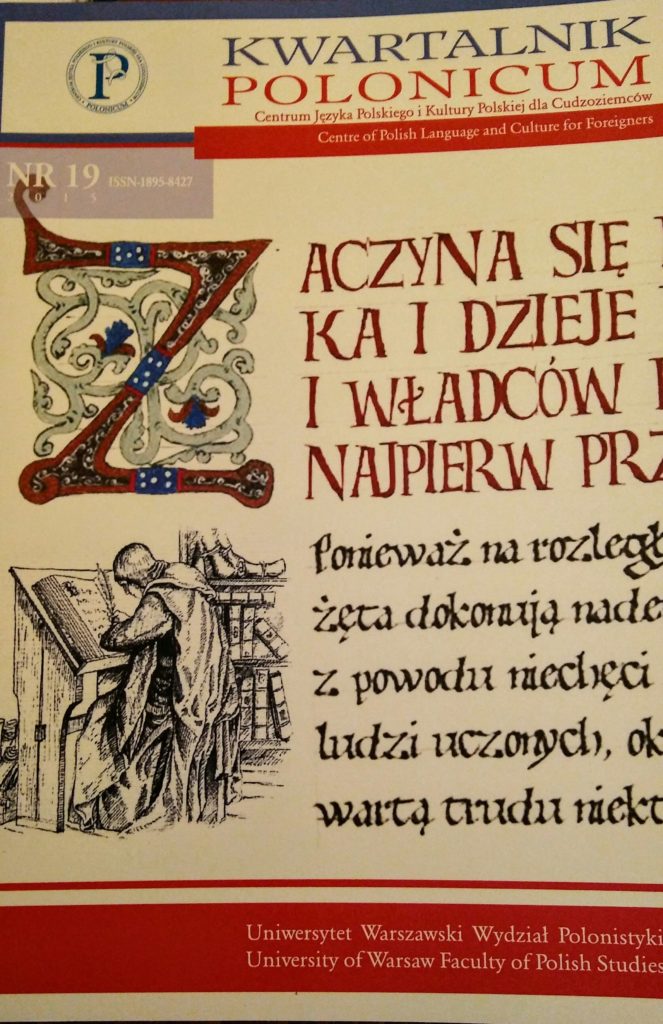 KWARTALNIK
POLONICUM
Centrum Języka Polskiego i Kultury Polskiej dla Cudzoziemców
Centre of Polish Language and Culture for Foreigners
P
POLONICUM
NR 19 ISSN-1895-8427
2015
ZACZYNA SIĘ
KA I DZIEJE
I WŁADCÓW
NAJPIERW PRZ
Ponieważ na rozległ
żęta dokonują nade
z powodu niechęci
ludzi uczonych, ok
wartą trudu niekt
Uniwersytet Warszawski Wydział Polonistyki
University of Warsaw Faculty of Polish Studies